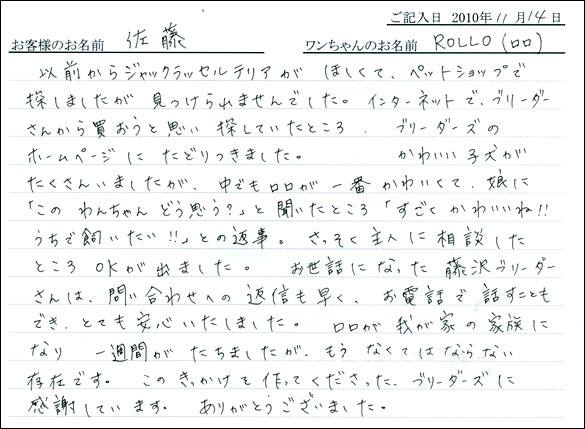 ご記入日 2010年 11 月 14 日
お客様のお名前 佐藤 ワンちゃんのお名前 ROLLO (ロロ)
以前からジャックラッセルテリアが ほしくて、ペットショップで
探しましたが 見つけられませんでした。インターネットで、ブリーダー
さんから買おうと思い 探していたところ、ブリーダーズの
ホームページに たどりつきました。 かわいい子犬が
たくさんいましたが、中でもロロが 一番かわいくて、娘に
「この わんちゃん どう思う?」と 聞いたところ「すごくかわいいね!!
うちで飼いたい!!」との返事。さっそく主人に相談した
ところ OKが出ました。 お世話になった 藤沢ブリーダー
さんは、問い合わせへの 返信も早く、お電話で 話すことも
でき、とても安心いたしました。 ロロが 我が家の家族に
なり 一週間が たちましたが、もう なくてはならない
存在です。 このきっかけを作ってくださった、ブリーダーズに
感謝しています。 ありがとうございました。